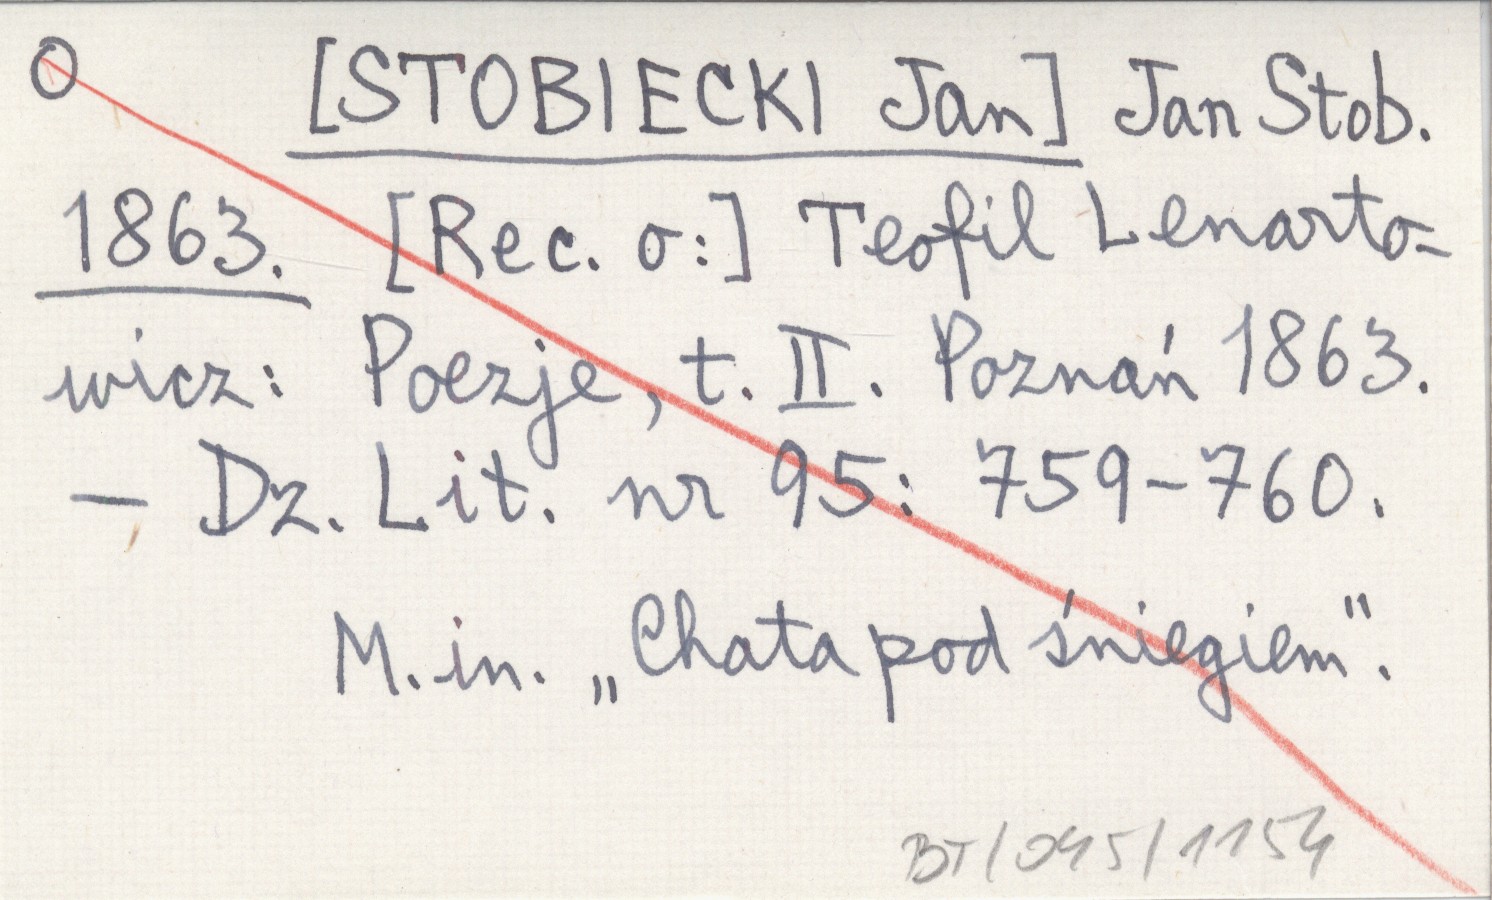 O [STOBIECKI Jan] Jan Stob.
1863. [Rec. o:] Teofil Lenarto=
wicz: Poezje, t. II. Poznań 1863.
— Dz. Lit. nr 95: 759-760.
M. in. „Chata pod śniegiem".
BT/045/1154